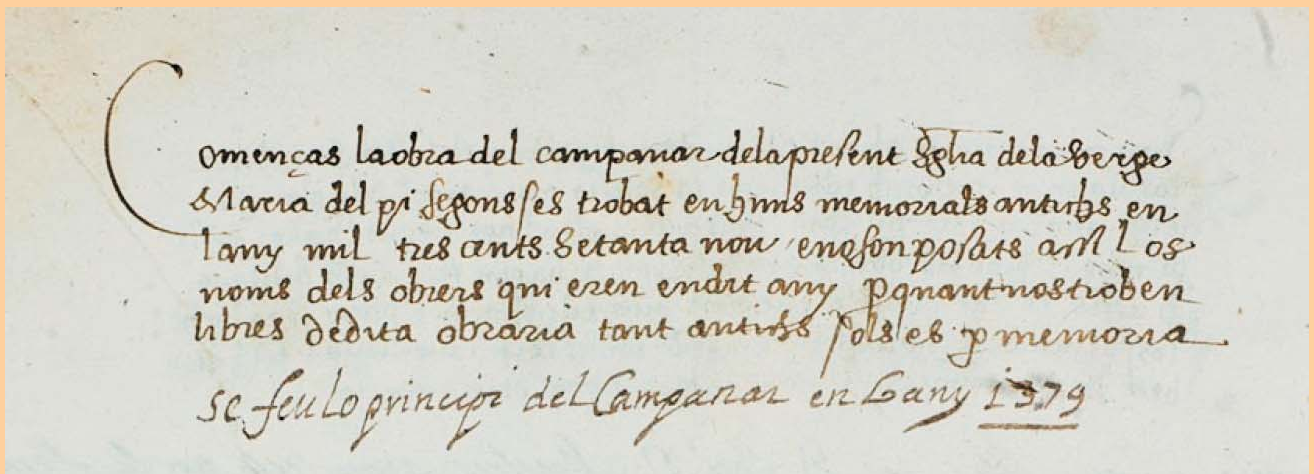 Començas la obra del campanar dela present Esglia dela verge
Maria del pi segons ses trobat en huns memorials antichs en
lany mil tres cents setanta nou, e no son posats assi los
noms dels obrers qui eren en dit any pquant nos troben
libres de dita obraria tant antichs sols es p memoria
se feu lo principi del Campanar en Lany 1379